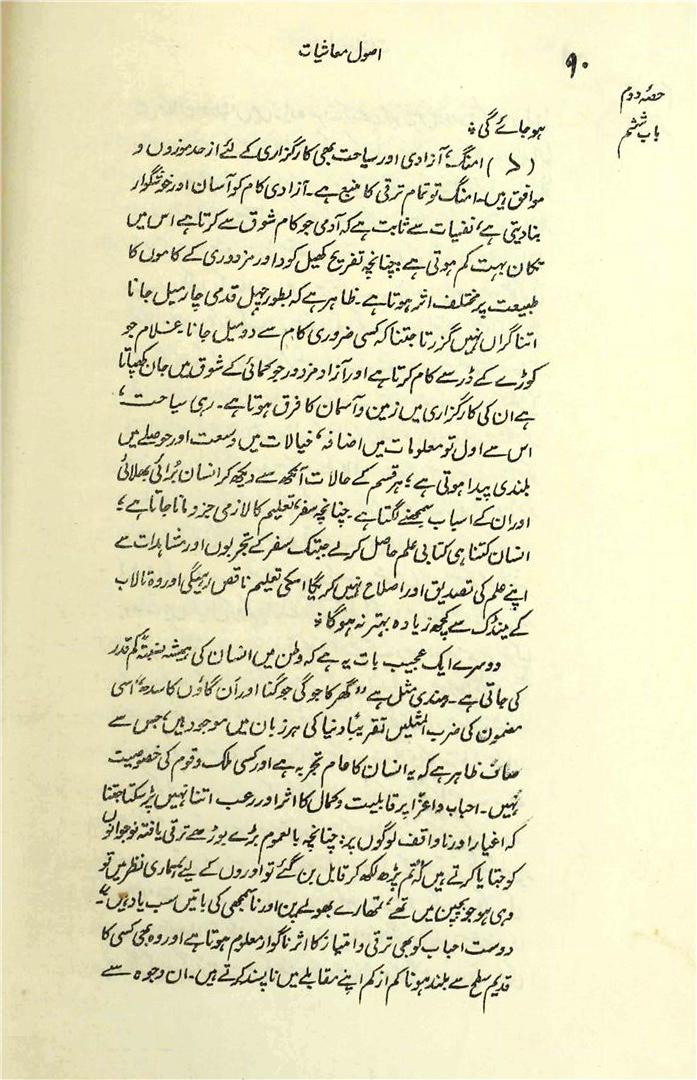 ۹۰
اصول معاشیات
حصۂ دوم
باب ششم
ہوجائے گی *
(د) امنگ، آزادی اور سیاحت بھی کارگزاری کے لئے از حد موزوں و
موافق ہیں۔ امنگ تو تمام ترقی کا منبع ہے۔ آزادی کام کو آسان اور خوشگوار
بنا دیتی ہے، نفسیات سے ثابت ہے کہ آدمی جو کام شوق سے کرتا ہے اس میں
تکان بہت کم ہوتی ہے؛ چنانچہ تفریح کھیل کود اور مزدوری کے کاموں کا
طبیعت پر مختلف اثر ہوتا ہے۔ ظاہر ہے کہ بطور چہل قدمی چار میل جانا
اتنا گراں نہیں گزرتا جتنا کہ کسی ضروری کام سے دو میل جانا۔ غلام جو
کوڑے کے ڈر سے کام کرتا ہے اور آزاد مزدور جو کمائی کے شوق میں جان کھپاتا
ہے ان کی کارگزاری میں زمین و آسمان کا فرق ہوتا ہے۔ رہی سیاحت،
اس سے اول تو معلومات میں اضافہ، خیالات میں وسعت اور حوصلے میں
بلندی پیدا ہوتی ہے؛ ہر قسم کے حالات آنکھ سے دیکھ کر انسان برائی بھلائی
اور ان کے اسباب سمجھنے لگتا ہے۔ چنانچہ سفر، تعلیم کا لازمی جزو مانا جاتا ہے؛
انسان کتنا ہی کتابی علم حاصل کرلے جبتک سفر کے تجربوں اور مشاہدات سے
اپنے علم کی تصدیق اور اصلاح نہیں کریگا اسکی تعلیم ناقص رہیگی اور وہ تالاب
کے مینڈک سے کچھ زیادہ بہتر نہ ہوگا *
دوسرے ایک عجیب بات یہ ہے کہ وطن میں انسان کی ہمیشہ نسبتہً کم قدر
کی جاتی ہے۔ ہندی مثل ہے "گھر کا جوگی جوگنا اور ان گاؤں کا سدھ" اسی
مضمون کی ضرب المثلیں تقریباً دنیا کی ہر زبان میں موجود ہیں، جس سے
صاف ظاہر ہے کہ یہ انسان کا عام تجربہ ہے اور کسی ملک و قوم کی خصوصیت
نہیں۔ احباب و اعزا پر قابلیت و کمال کا اثر اور رعب اتنا نہیں پڑسکتا جتنا
کہ اغیار اور ناواقف لوگوں پر؛ چنانچہ بالعموم بڑے بوڑھے ترقی یافتہ نوجوانوں
کو جتایا کرتے ہیں کہ "تم پڑھ لکھ کر قابل بن گئے تو اوروں کے لیے ہماری نظر میں تو
وہی ہو جو بچپن میں تھے، تمھارے بھولے پن اور ناسمجھی کی باتیں سب یاد ہیں"۔
دوست احباب کو بھی ترقی و امتیاز کا اثر ناگوار معلوم ہوتا ہے اور وہ بھی کسی کا
قدیم سطح سے بلند ہونا کم از کم اپنے مقابلے میں ناپسند کرتے ہیں۔ ان وجوہ سے